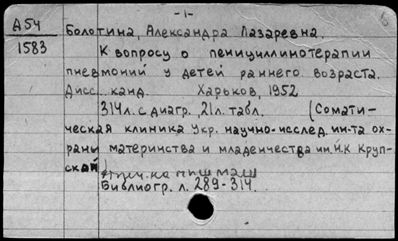 -1-
А54
1583
Болотина, Александра Лазаревна.
К вопросу о пенициллинотерапии
пневмоний у детей раннего возраста.
Дисс. канд. Харьков, 1952
314л. с диагр., 21л. табл. (Сомати-
ческая клиника Укр. научно-исслед. ин-та ох-
раны материнства и младенчества им. Н.К Круп-
ской)
Библиогр. л. 289-314.